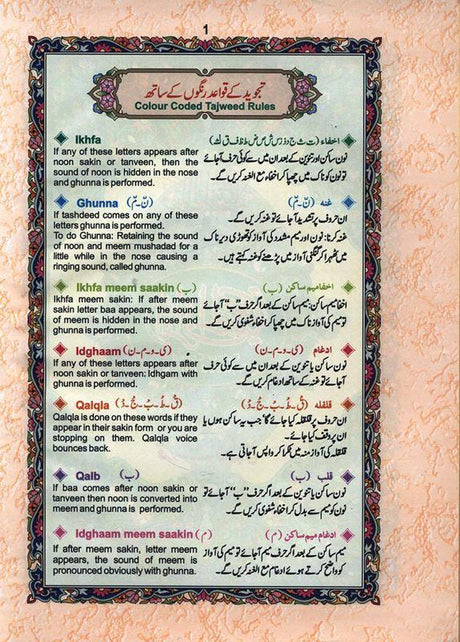 1
تجوید کے قواعد رنگوں کے ساتھ
Colour Coded Tajweed Rules
Ikhfa
If any of these letters appears after
noon sakin or tanveen, then the
sound of noon is hidden in the nose
and ghunna is performed.
اخفاء (ت ث ج د ذ ز س ش ص ض ط ظ ف ق ك)
نون ساکن اور تنوین کے بعد ان میں سے کوئی حرف آجائے
تو نون کو ناک میں چھپا کر اخفاء مع الغنہ کریں گے۔
Ghunna (نّ - مّ)
If tashdeed comes on any of these
letters ghunna is performed.
To do Ghunna: Retaining the sound
of noon and meem mushadad for a
little while in the nose causing a
ringing sound, called ghunna.
غنه (نّ - مّ)
ان حروف پر تشدید آجائے تو غنہ کریں گے۔
غنہ کرنا: نون اور میم مشدد کی آواز کو تھوڑی دیر ناک
میں ٹھہرا کر گنگنی آواز میں پڑھنے کو غنہ کہتے ہیں۔
Ikhfa meem saakin (ب)
Ikhfa meem sakin: If after meem
sakin letter baa appears, the sound
of meem is hidden in the nose and
ghunna is performed.
اخفا میم ساکن (ب)
اخفا میم: میم ساکن کے بعد اگر حرف "ب" آجائے
تو میم کی آواز ناک میں چھپا کر اخفاء شفوی کریں گے۔
Idghaam (ی - و - م - ن)
If any of these letters appears after
noon sakin or tanveen: Idgham with
ghunna is performed.
ادغام (ی - و - م - ن)
نون ساکن یا تنوین کے بعد ان میں سے کوئی حرف
آجائے تو غنہ کے ساتھ ادغام کریں گے۔
Qalqla (قْ طْ بْ جْ دْ)
Qalqla is done on these words if they
appear in their sakin form or you are
stopping on them. Qalqla voice
bounces back.
قلقله (قْ طْ بْ جْ دْ)
ان حروف پر قلقلہ کیا جائے گا جب یہ ساکن ہوں یا
ان پر وقف کیا جائے۔
قلقلہ کی آواز منہ میں ٹکرا کر واپس آ جاتی ہے۔
Qalb (ب)
If baa comes after noon sakin or
tanveen then noon is converted into
meem and ghunna is performed.
قلب (ب)
نون ساکن یا تنوین کے بعد اگر حرف "ب" آجائے تو
نون کو میم سے بدل کر اخفاء شفوی کریں گے۔
Idghaam meem saakin (م)
If after meem sakin, letter meem
appears, the sound of meem is
pronounced obviously with ghunna.
ادغام میم ساکن (م)
میم ساکن کے بعد اگر حرف میم آجائے تو میم کی آواز
کو واضح کرتے ہوئے ادغام مع الغنہ کریں گے۔